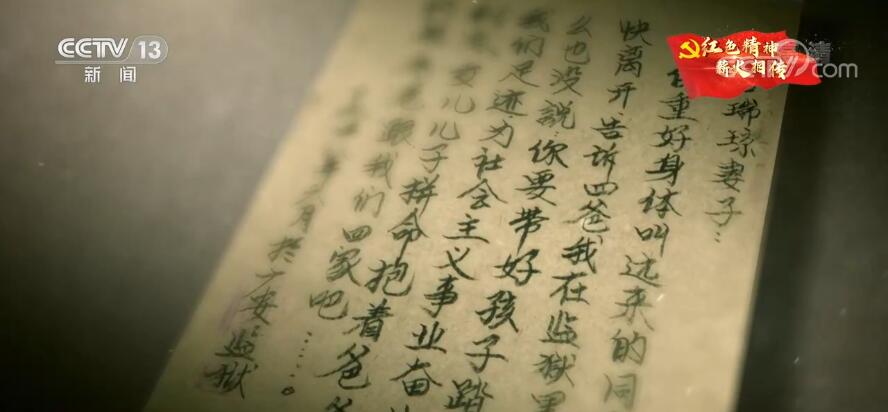 CCTV 13
新闻
红色精神
薪火相传
com
瑞琼妻子：
重好身体叫远来的同
快离开告诉四爸我在监狱里
么也没説你要带好孩子踏
我们足迹为社会主义事业奋
女儿儿子拼命抱着爸爸
跟我们回家吧……。
年 月于广安监狱